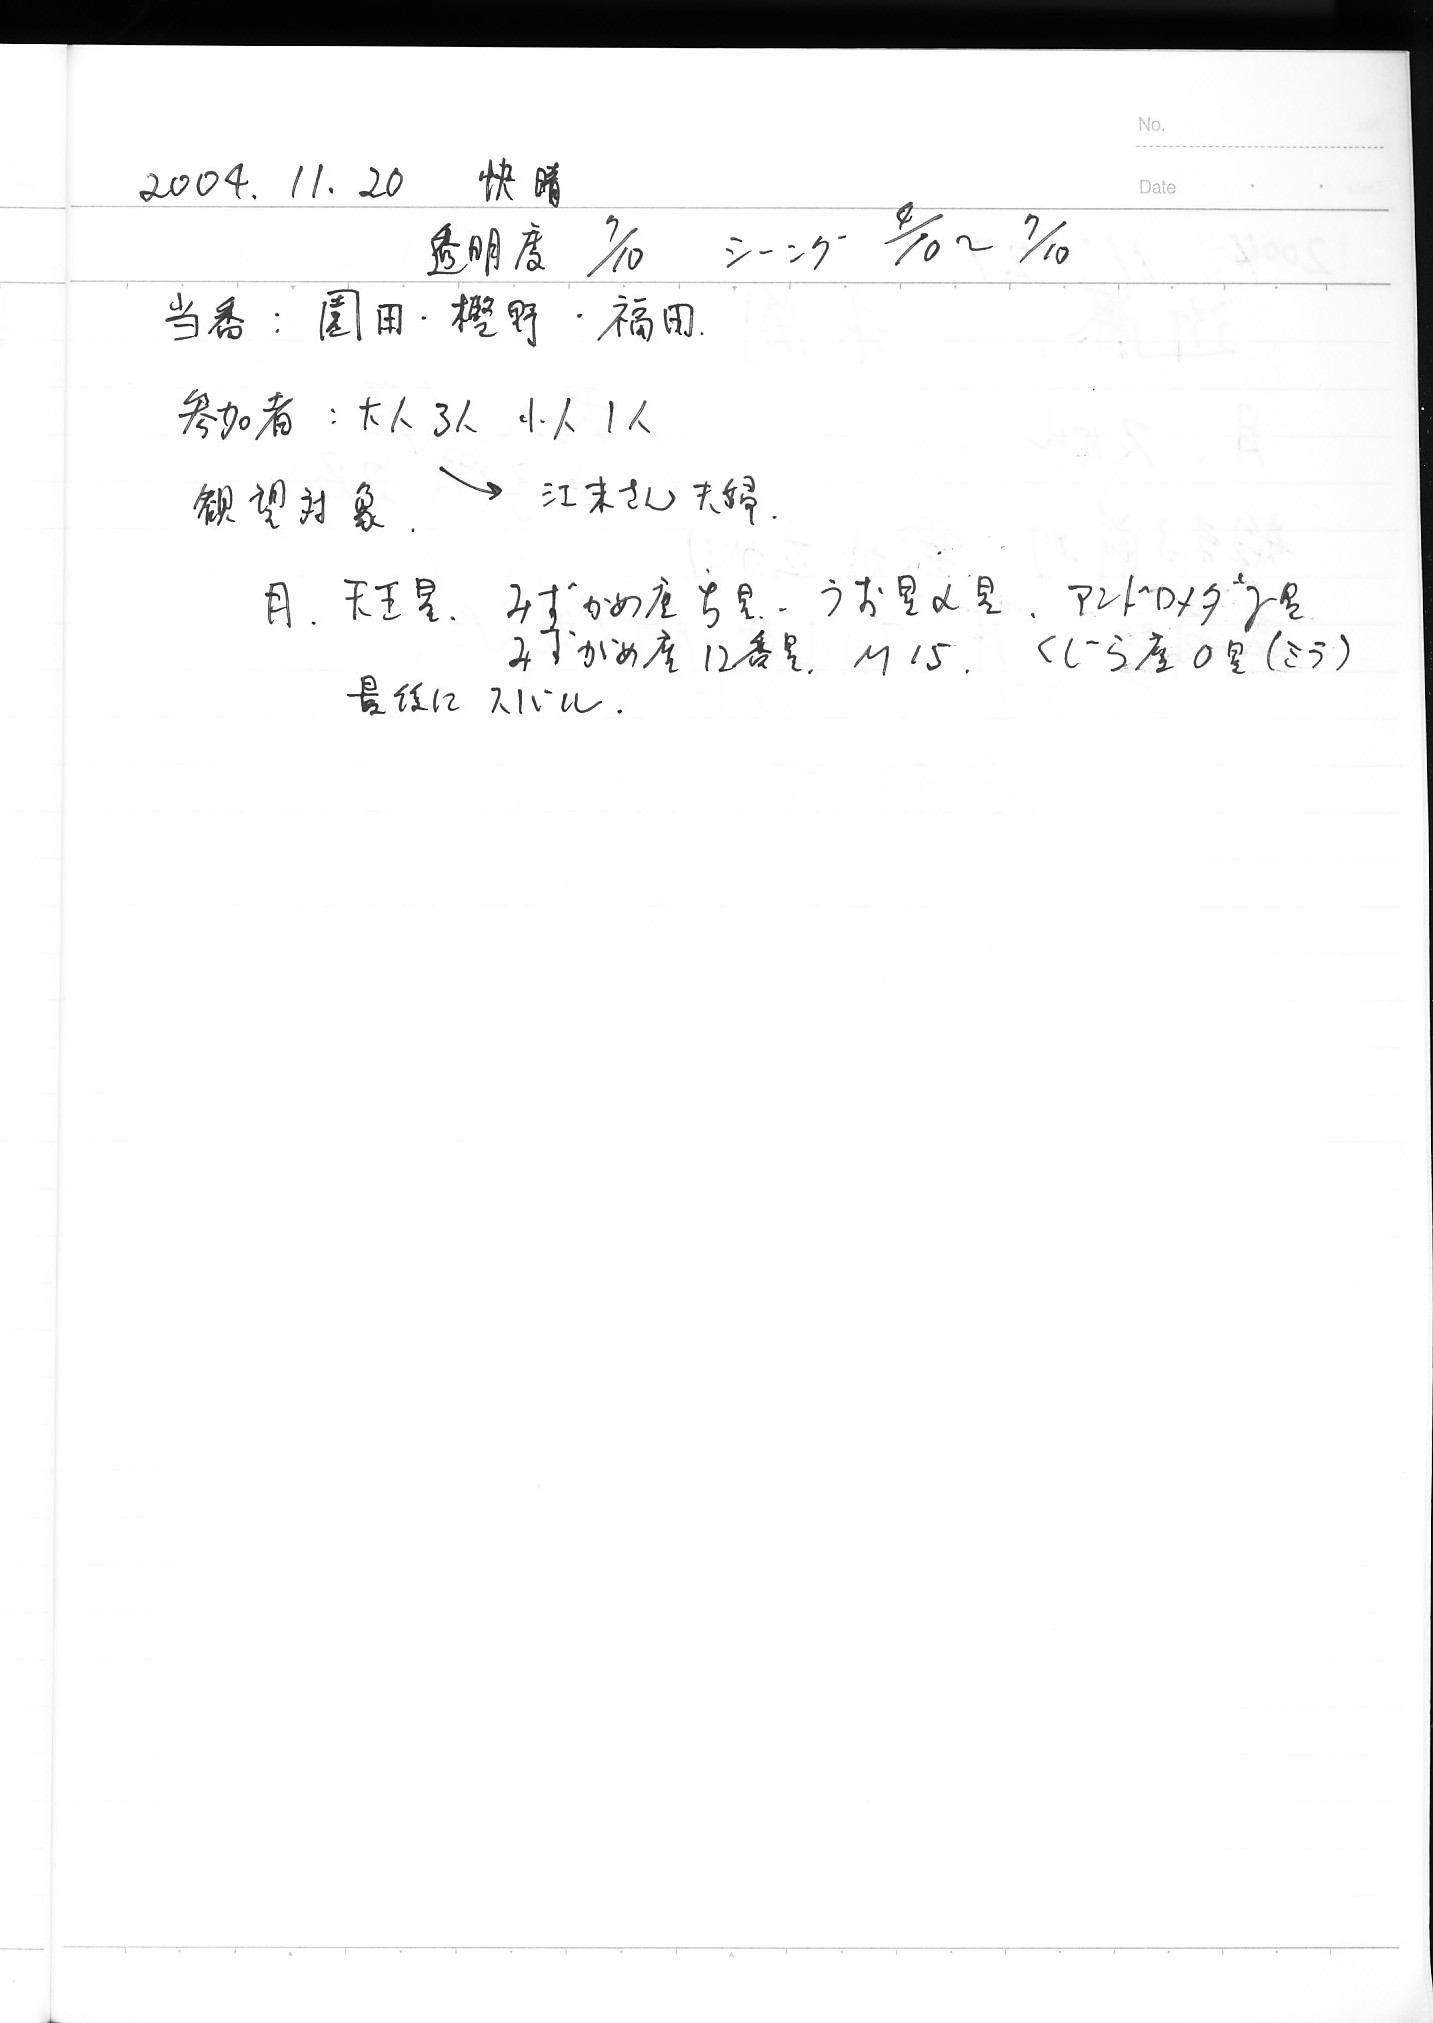 No.
Date
2004. 11. 20 快晴
透明度 7/10 シーング 4/10〜7/10
当番：園田・樫野・福田.
参加者：大人3人 小人1人
→ 江末さん夫婦.
観望対象.
月. 天王星. みずがめ座ζ星. うお星α星. アンドロメダγ星
みずがめ座12番星. M15. くじら座o星(ミラ)
最後に スバル.